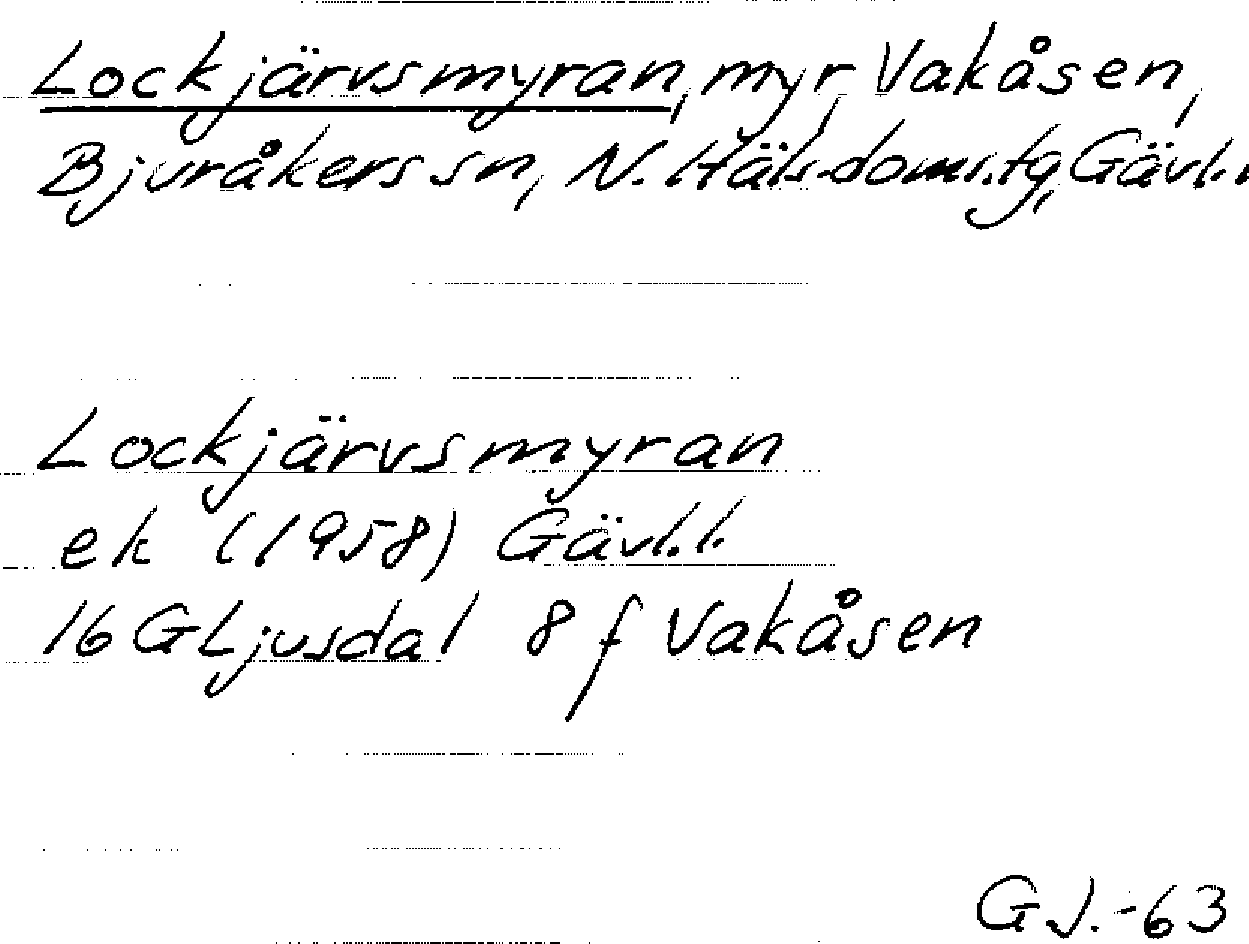 Lockjärvsmyran, myr, Vakåsen,
Bjuråkers sn, N. Häls. doms.tg, Gävl.
Lockjärvsmyran
ek (1958) Gävl.l.
16 G Ljusdal 8 f Vakåsen
GJ.-63